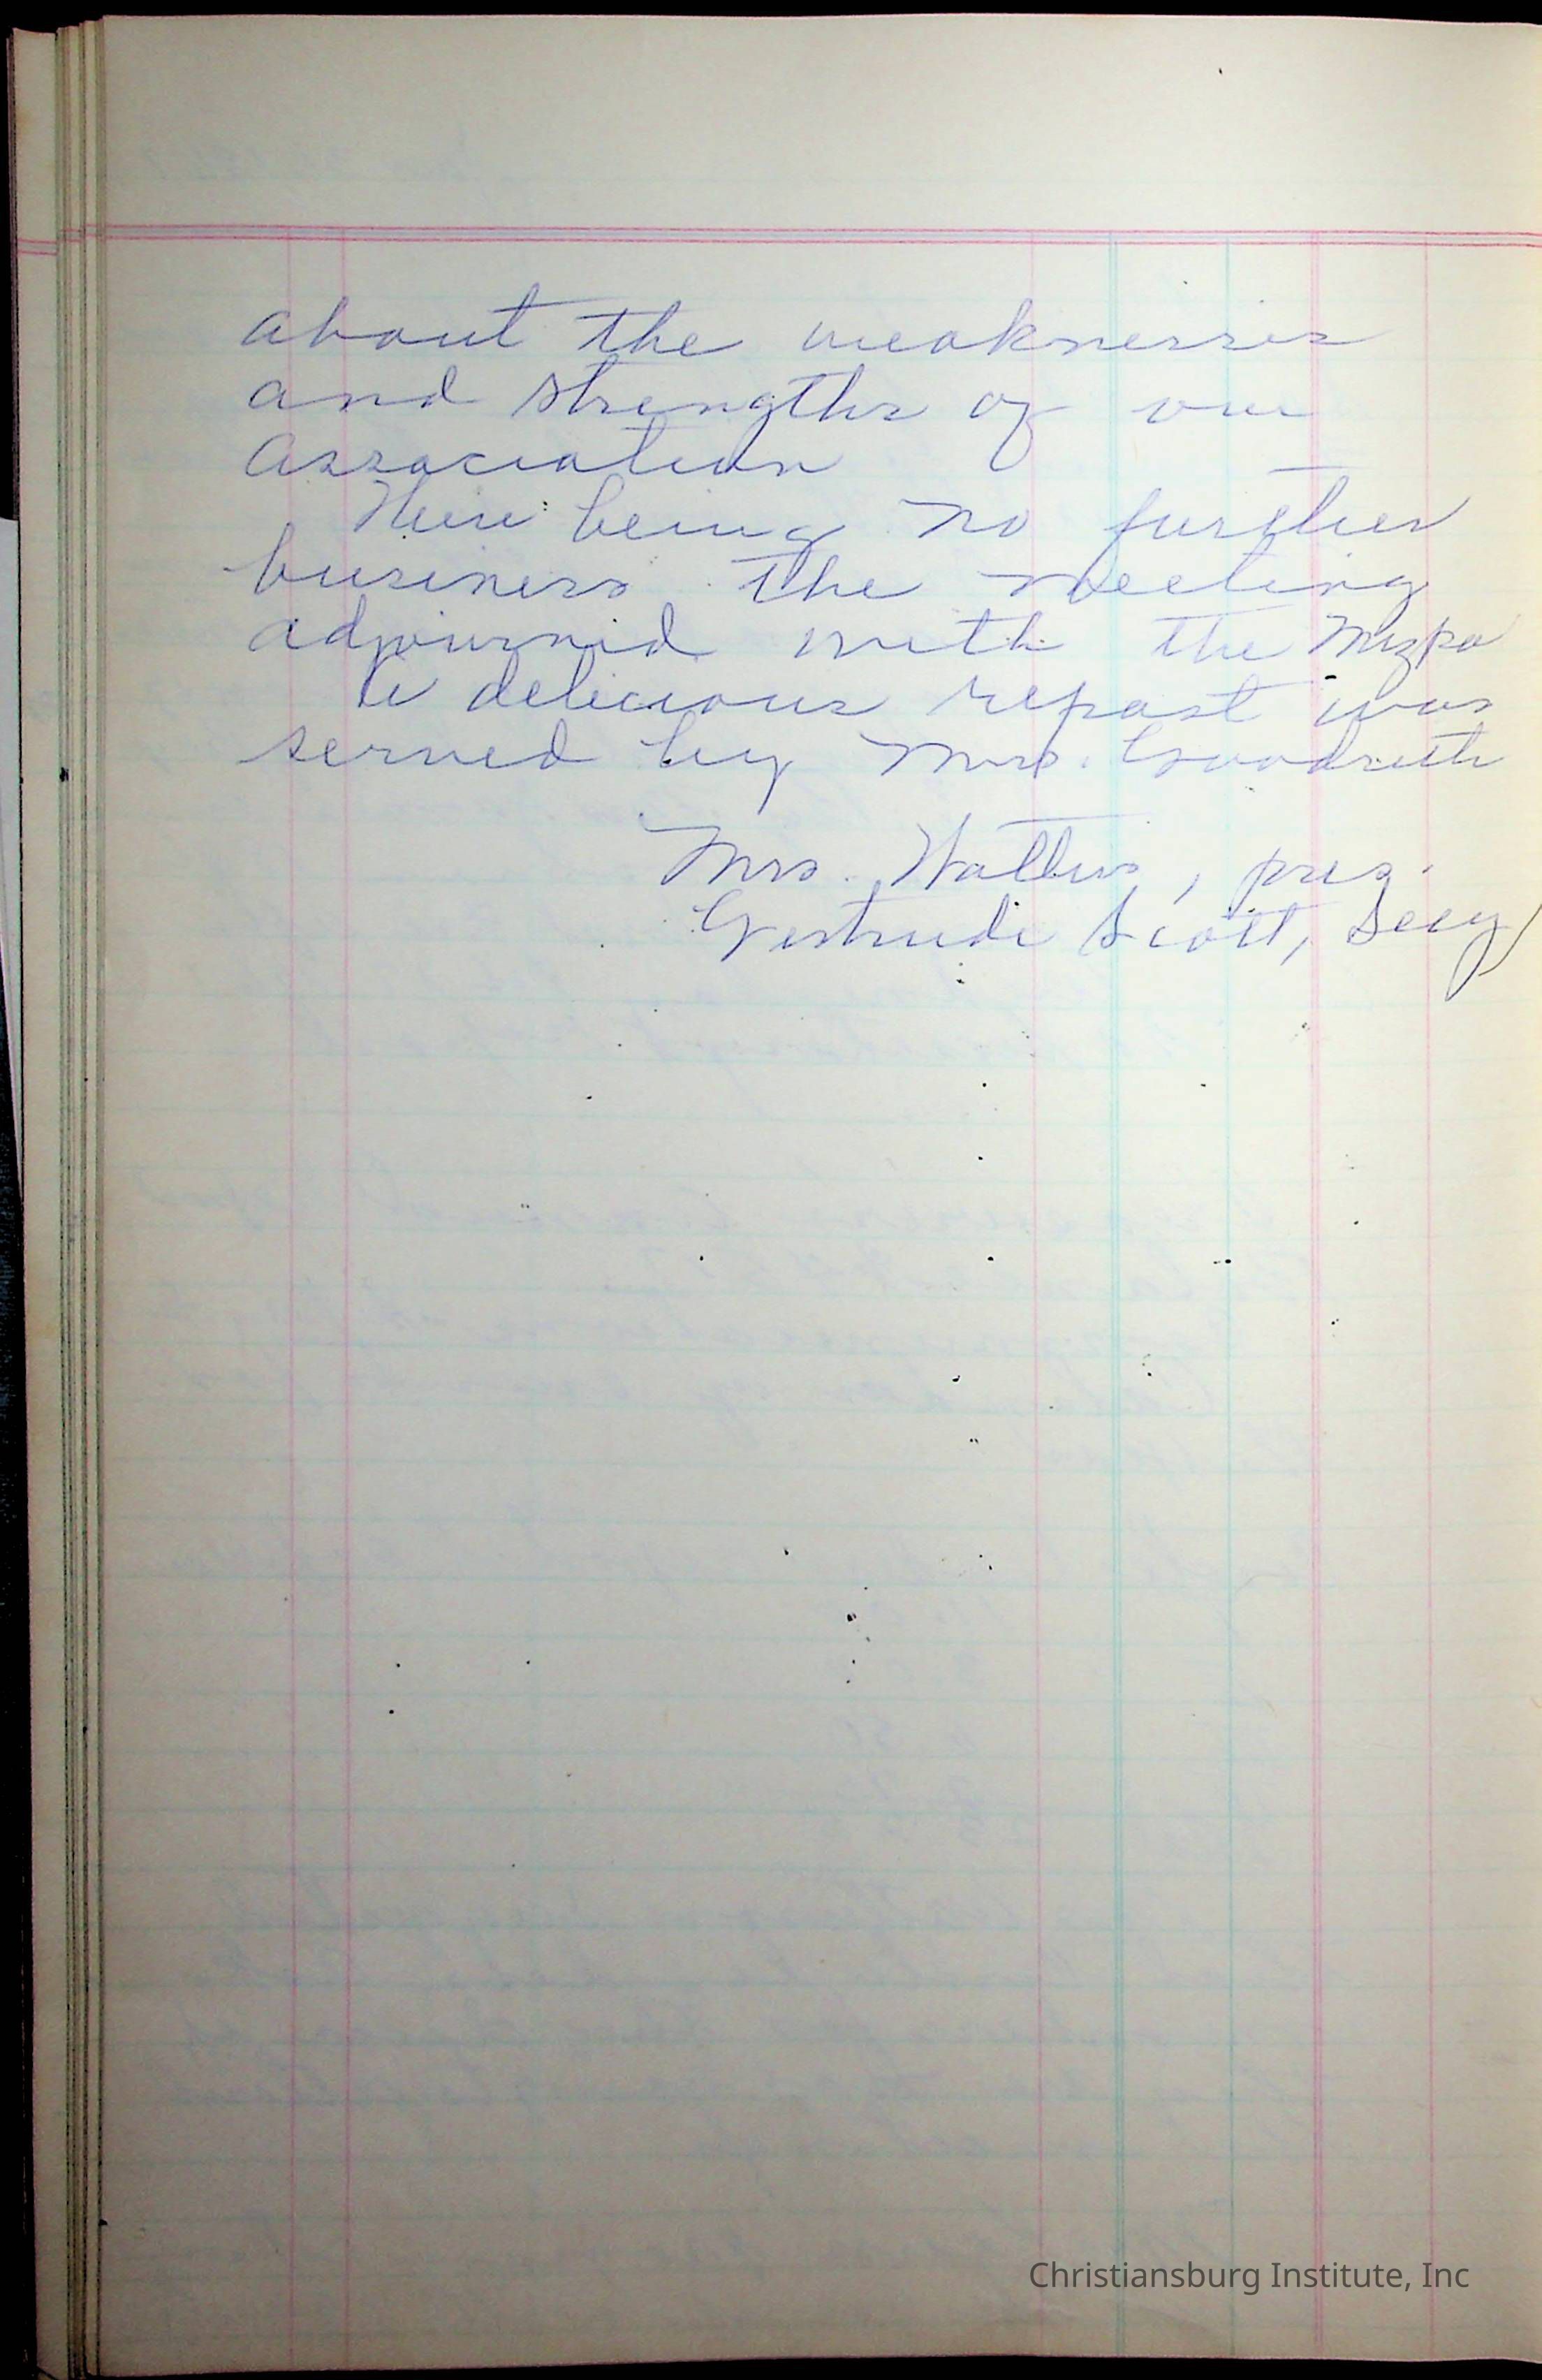 about the weaknesses
and strengths of our
Association
There being no further
business the meeting
adjourned with the Mizpa
A delicious repast was
served by Mrs. 
Mrs. Walters, pres.
Gertrude Scott, Secy
Christiansburg Institute, Inc